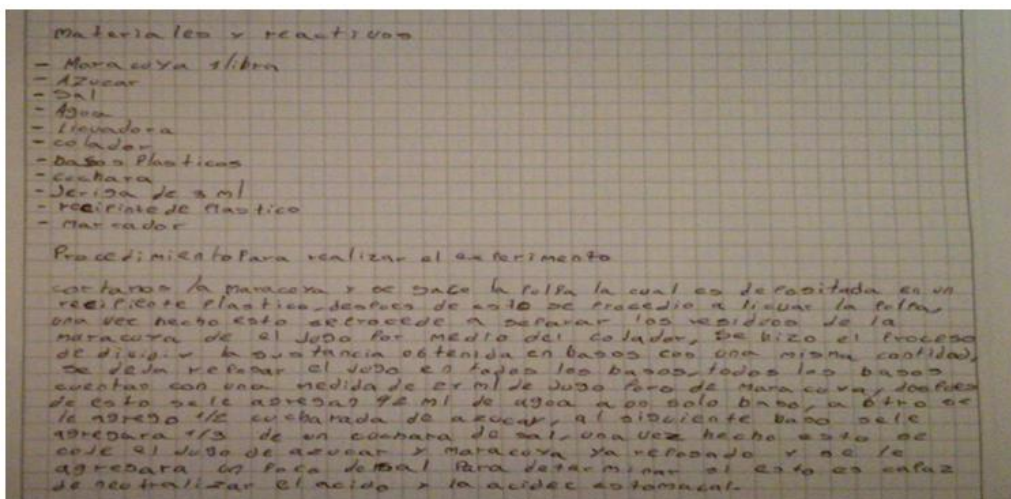 materiales y reactivos
- Maracuya 1libra
- AZucar
- Sal
- Agua
- Licuadora
- colador
- basos Plasticos
- cuchara
- Jeriga de 3 ml
- recipinte de Plastico
- marcador
Procedimiento Para realizar el experimento
cortamos la maracuya y se sace la Polpa la cual es depositada en un
recipiente Plastico, despues de esto se Procedio a licuar la Polpa,
una vec hecho esto se Procede a separar los residuos de la
maracuya de el Jugo Por medio del colador, se hizo el Proceso
de dividir la sustancia obtenida en basos con una misma cantidad,
se deja reposar el Jugo en todos los basos, todos los basos
cuentas con una medida de ml de Jugo Puro de maracuya, despues
de esto se le agregan ml de agua a un solo baso, a otro se
le agrego 1/2 cucharada de azucar, al siguiente baso se le
agregara 1/3 de un cuchara de sal, una vez hecho esto se
coje el Jugo de azucar y maracuya ya reposado y se le
agregara un Poco de sal Para determinar si esto es capaz
de neutralizar el acido y la acidec estomacal.